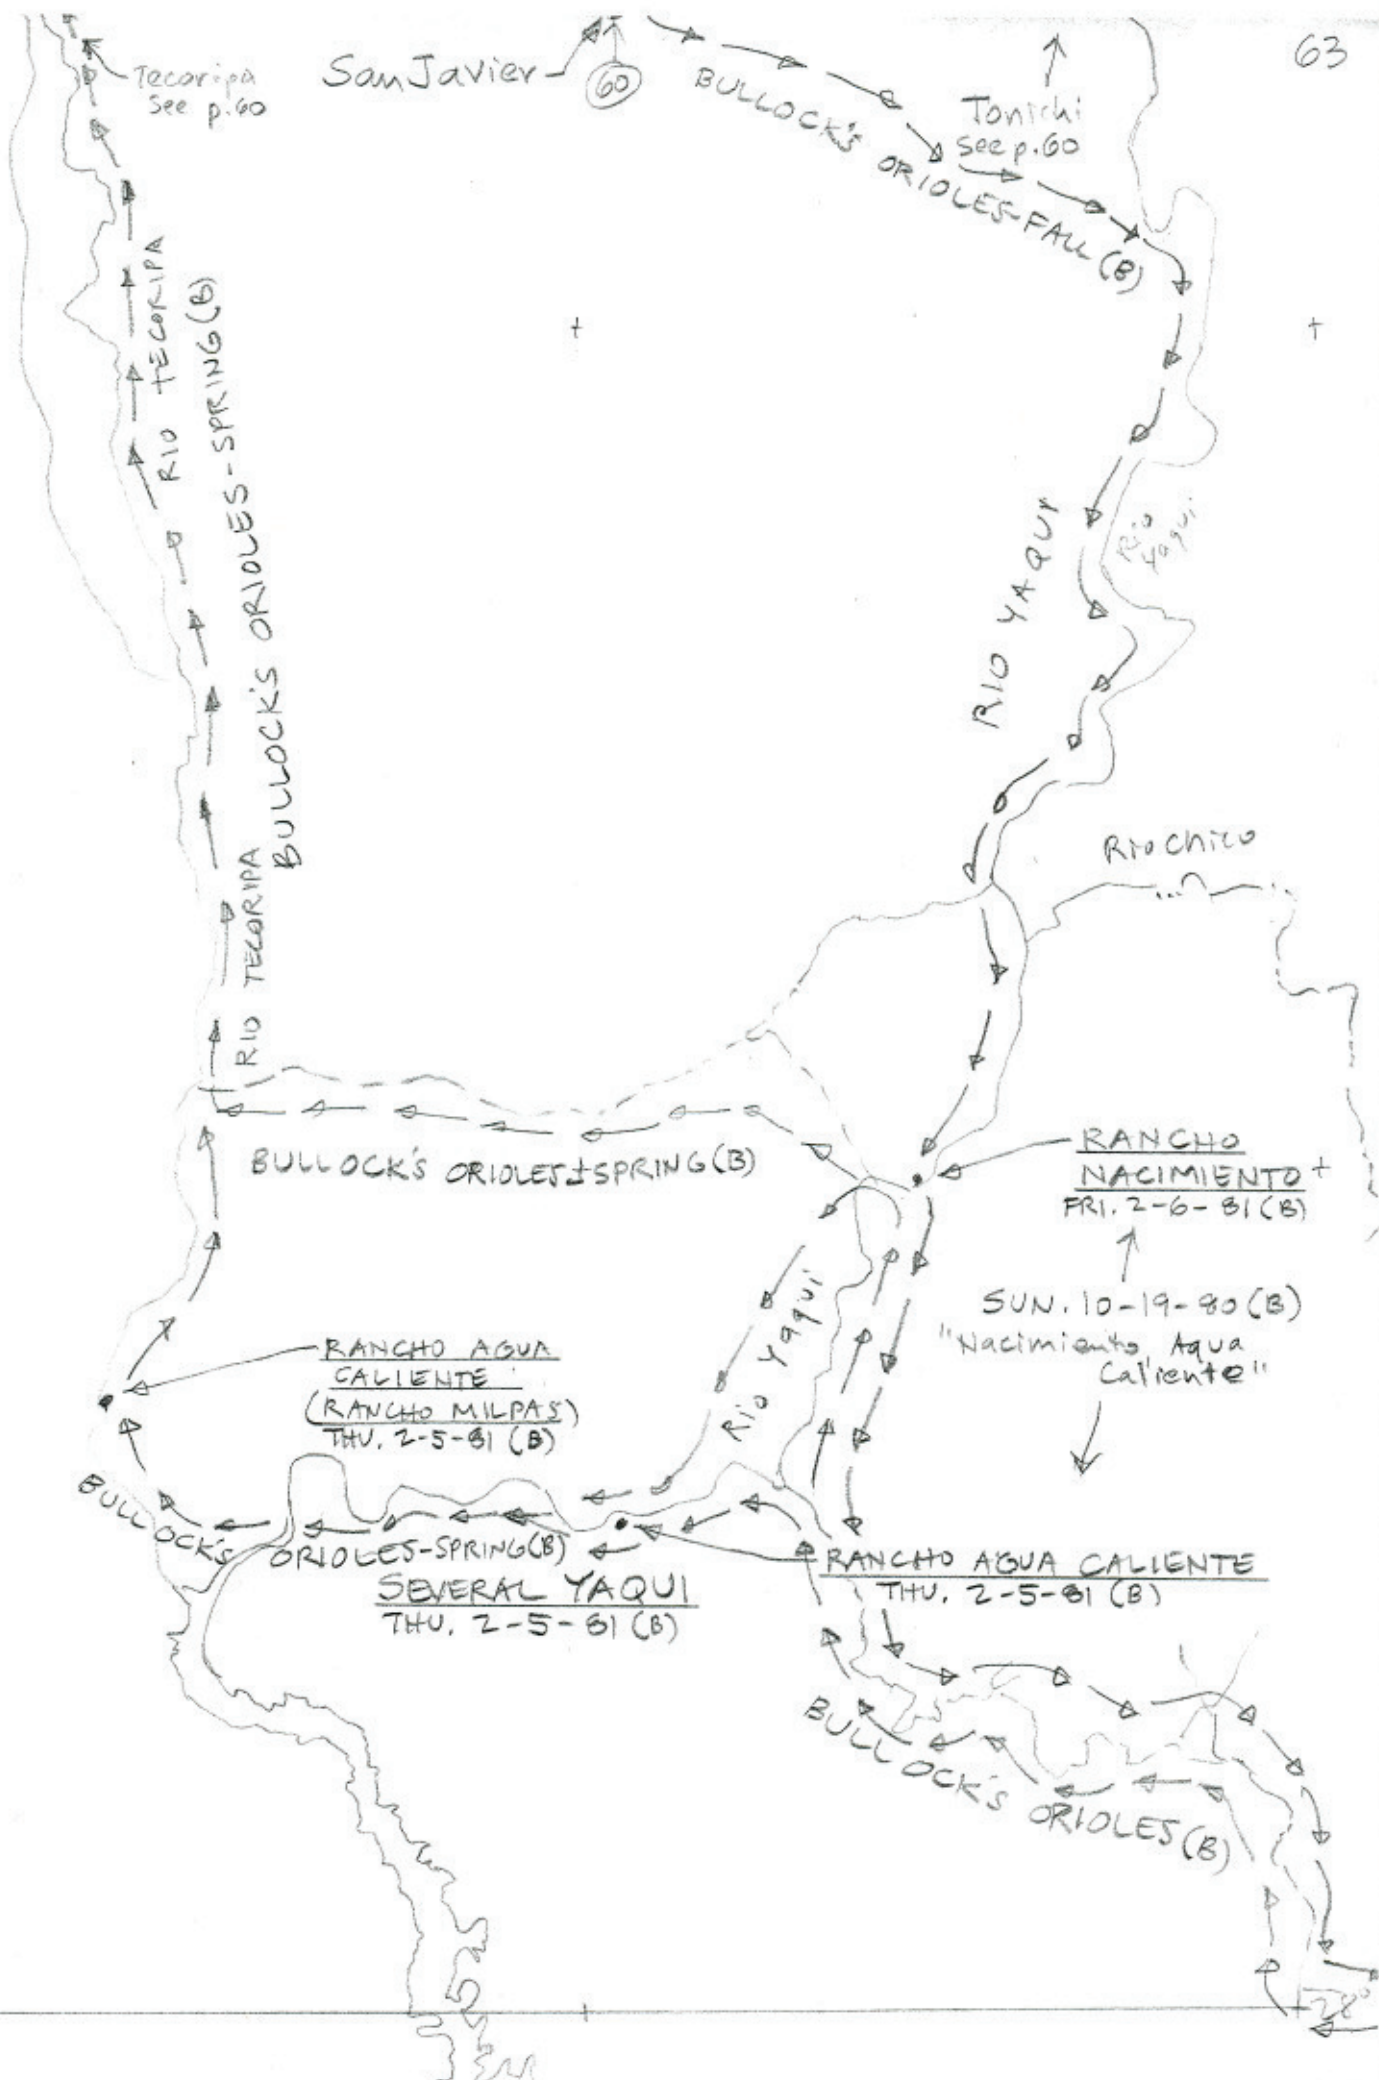 63
Tecoripa
See p.60
San Javier
60
Tonichi
See p.60
BULLOCK'S ORIOLES-FALL (B)
RIO TECORIPA
BULLOCK'S ORIOLES-SPRING (B)
RIO YAQUI
Rio
Yaqui
Rio Chico
RIO TECORIPA
BULLOCK'S ORIOLES-SPRING (B)
RANCHO
NACIMIENTO
FRI. 2-6-81 (B)
SUN. 10-19-80 (B)
"Nacimiento Agua
Caliente"
Rio Yaqui
RANCHO AGUA
CALIENTE
(RANCHO MILPAS)
THU. 2-5-81 (B)
BULLOCK'S ORIOLES-SPRING (B)
SEVERAL YAQUI
THU. 2-5-81 (B)
RANCHO AGUA CALIENTE
THU. 2-5-81 (B)
BULLOCK'S ORIOLES (B)
28°